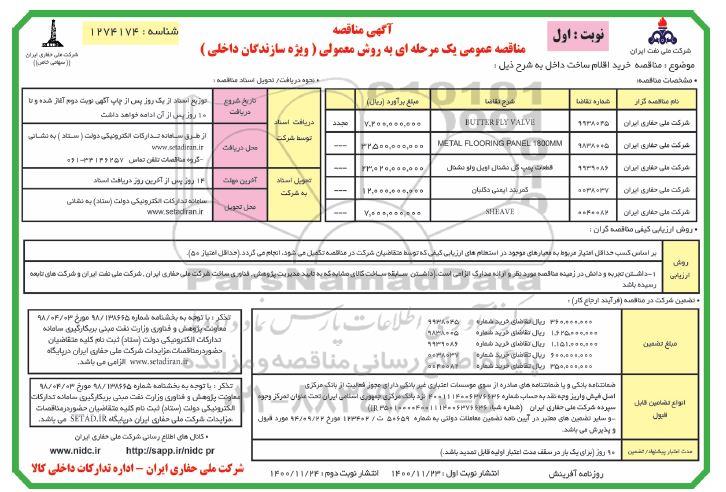 شناسه : ۱۲۷۴۱۷۴
شرکت ملی حفاری ایران
(( سهامی خاص ))
آگهی مناقصه
مناقصه عمومی یک مرحله ای به روش معمولی ( ویژه سازندگان داخلی )
نوبت : اول
شرکت ملی نفت ایران
موضوع : مناقصه خرید اقلام ساخت داخل به شرح ذیل :
• مشخصات مناقصه:
نام مناقصه گزار شماره تقاضا شرح تقاضا مبلغ برآورد (ریال)
شرکت ملی حفاری ایران ۹۹۳۸۰۴۵ BUTTERFLY VALVE ۷,۲۰۰,۰۰۰,۰۰۰ مجدد
شرکت ملی حفاری ایران ۹۸۳۸۰۰۵ METAL FLOORING PANEL 1800MM ۳۲,۵۰۰,۰۰۰,۰۰۰ ---
شرکت ملی حفاری ایران ۹۹۳۹۰۸۶ قطعات پمپ گل نشنال اویل ولو نشنال ۲۳,۰۲۰,۰۰۰,۰۰۰ ---
شرکت ملی حفاری ایران ۰۰۳۸۰۳۷ کمربند ایمنی دکلبان ۱۲,۰۰۰,۰۰۰,۰۰۰ ---
شرکت ملی حفاری ایران ۰۰۴۰۰۸۲ SHEAVE ۷,۰۰۰,۰۰۰,۰۰۰ ---
• نحوه دریافت/ تحویل اسناد مناقصه :
دریافت اسناد توسط شرکت
تاریخ شروع دریافت
توزیع اسناد از یک روز پس از چاپ آگهی نوبت دوم آغاز شده و تا ۱۰ روز پس از آن ادامه خواهد داشت
محل دریافت
از طرق سامانه تدارکات الکترونیکی دولت ( ستاد ) به نشانی www.setadiran.ir
-گروه مناقصات تلفن تماس ۳۴۱۴۶۲۵۷-۰۶۱
تحویل اسناد به شرکت
آخرین مهلت
۱۴ روز پس از آخرین روز دریافت اسناد
محل تحویل
سامانه تدارکات الکترونیکی دولت (ستاد) به نشانی www.setadiran.ir
• روش ارزیابی کیفی مناقصه گران :
روش ارزیابی
بر اساس کسب حداقل امتیاز مربوط به معیارهای موجود در استعلام های ارزیابی کیفی که توسط متقاضیان شرکت در مناقصه تکمیل می شود، انجام می گردد.(حداقل امتیاز ۵۰).
۱-داشتن تجربه و دانش در زمینه مناقصه مورد نظر و ارائه مدارک الزامی است (داشتن سابقه ساخت کالای مشابه که به تایید مدیریت پژوهش, فناوری ساخت شرکت ملی حفاری ایران, شرکت ملی نفت ایران و شرکت های تابعه رسیده باشد
• تضمین شرکت در مناقصه (فرآیند ارجاع کار) :
مبلغ تضمین
۳۶۰,۰۰۰,۰۰۰ ریال تقاضای خرید شماره ۹۹۳۸۰۴۵
۱,۶۲۵,۰۰۰,۰۰۰ ریال تقاضای خرید شماره ۹۸۳۸۰۰۵
۱,۱۵۱,۰۰۰,۰۰۰ ریال تقاضای خرید شماره ۹۹۳۹۰۸۶
۶۰۰,۰۰۰,۰۰۰ ریال تقاضای خرید شماره ۰۰۳۸۰۳۷
۳۵۰,۰۰۰,۰۰۰ ریال تقاضای خرید شماره ۰۰۴۰۰۸۲
انواع تضامین قابل قبول
ضمانتنامه بانکی و یا ضمانتنامه های صادره از سوی موسسات اعتباری غیر بانکی دارای مجوز فعالیت از بانک مرکزی
اصل فیش واریز وجه نقد به حساب شماره ۴۰۰۱۱۱۴۰۰۶۳۷۶۶۳۶ نزد بانک مرکزی جمهوری اسلامی ایران تحت عنوان تمرکز وجوه سپرده شرکت ملی حفاری ایران
-و سایر تضمین های معتبر در آیین نامه تضمین معاملات دولتی به شماره ۵۰۶۵۹ ت / ۱۲۳۴۰۲ مورخ ۹۴/۰۹/۲۲ مورد قبول و پذیرش می باشد.
مدت اعتبار پیشنهاد/ تضمین
۹۰ روز (برای یک بار در سقف مدت اعتبار اولیه قابل تمدید باشد.)
تذکر : با توجه به بخشنامه شماره ۹۸/۱۳۸۶۶۵ مورخ ۹۸/۰۴/۰۳ معاونت پژوهش و فناوری وزارت نفت مبنی بربکارگیری سامانه تدارکات الکترونیکی دولت (ستاد) ثبت نام کلیه متقاضیان حضوردرمناقصات مزایدات شرکت ملی حفاری ایران درپایگاه www.setadiran.ir الزامی می باشد.
تذکر : با توجه به بخشنامه شماره ۹۸/۱۳۸۶۶۵ مورخ ۹۸/۰۴/۰۳ معاونت پژوهش و فناوری وزارت نفت مبنی بربکارگیری سامانه تدارکات الکترونیکی دولت (ستاد) ثبت نام کلیه متقاضیان حضوردرمناقصات ,مزایدات شرکت ملی حفاری ایران درپایگاه SETAD.IR می باشد.
• کانال های اطلاع رسانی شرکت ملی حفاری ایران
www.nidc.ir http://sapp.ir/nidc pr
شرکت ملی حفاری ایران - اداره تدارکات داخلی کالا
انتشار نوبت دوم : ۱۴۰۰/۱۱/۲۴
انتشار نوبت اول : ۱۴۰۰/۱۱/۲۳
روزنامه آفرینش
ParsNamadData